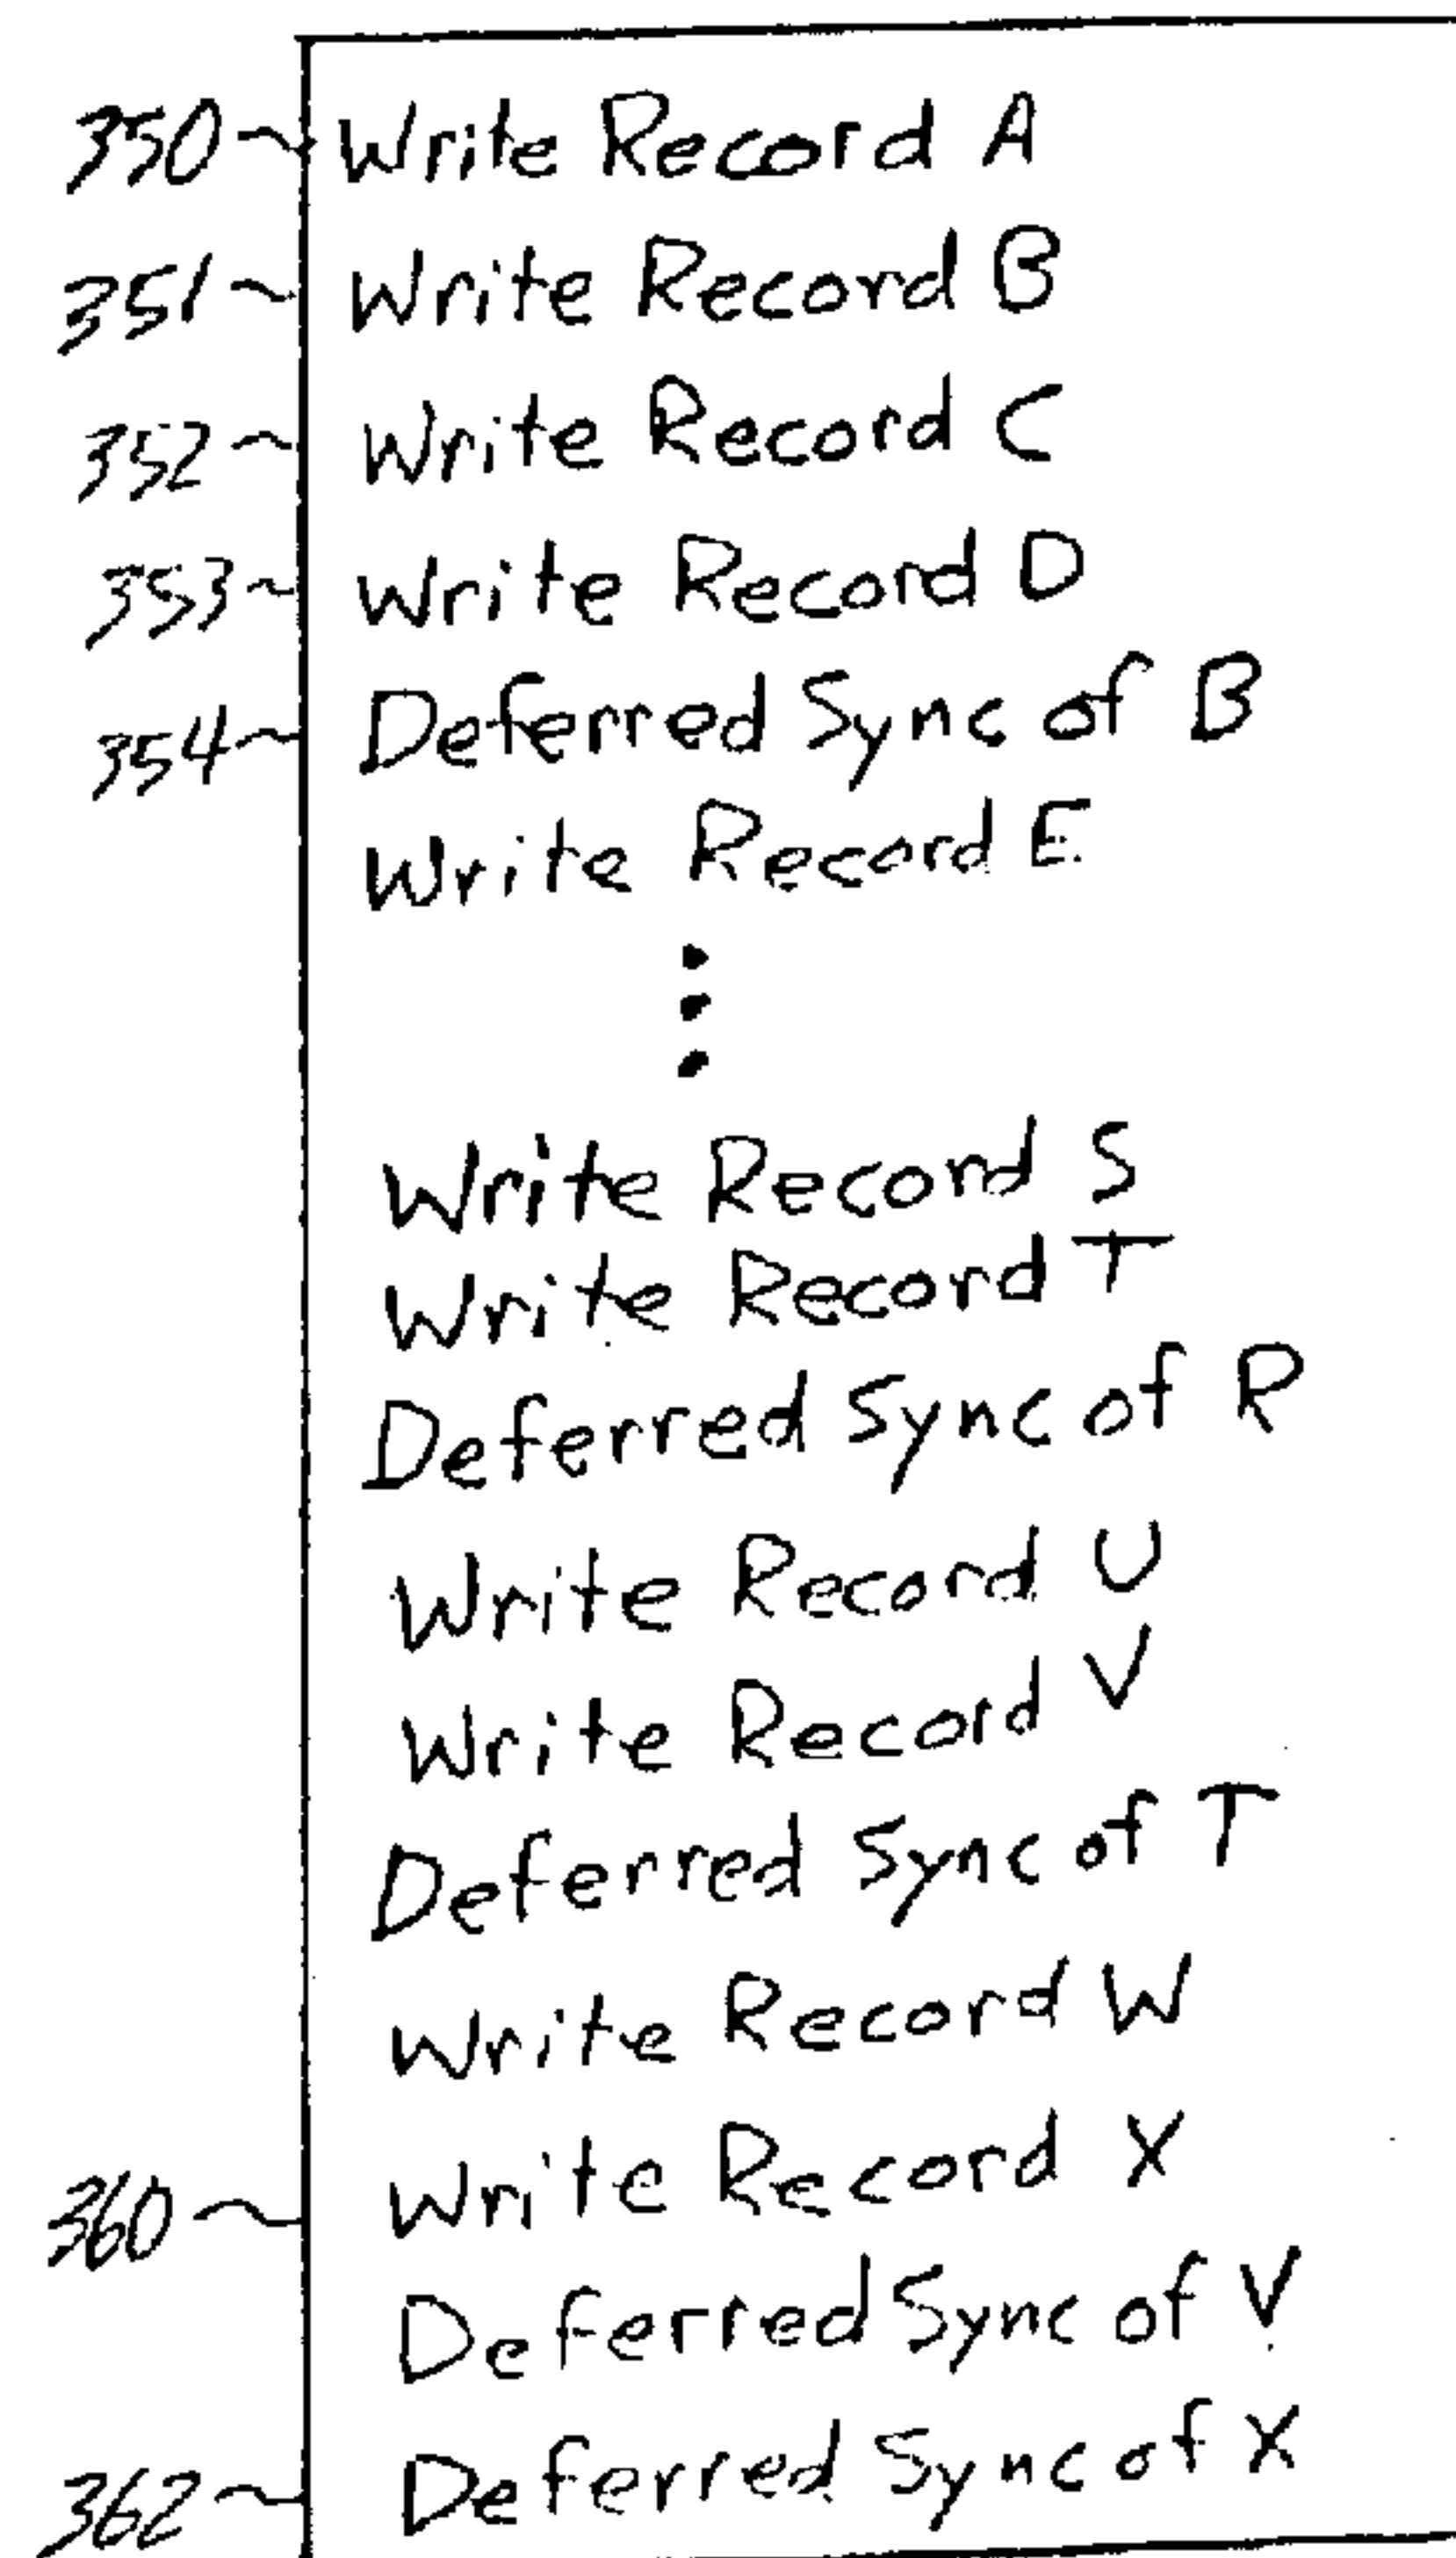 350 Write Record A
351 Write Record B
352 Write Record C
353 Write Record D
354 Deferred Sync of B
Write Record E
Write Record S
Write Record T
Deferred Sync of R
Write Record U
Write Record V
Deferred Sync of T
Write Record W
360 Write Record X
Deferred Sync of V
362 Deferred Sync of X